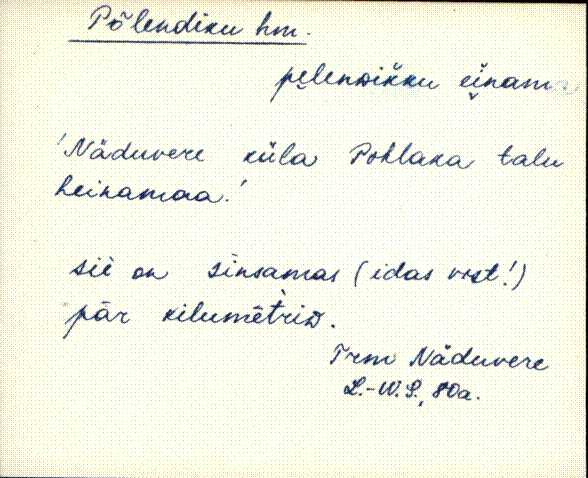 Põlendiku hm.
pe̮lenᴅikku ei̯nam
'Näduvere küla Pohlaka talu
heinamaa.'
siè on sinsamas (idas vist!)
pär kilumètriᴅ.
Trm Näduvere
L.-W.S., 80a.